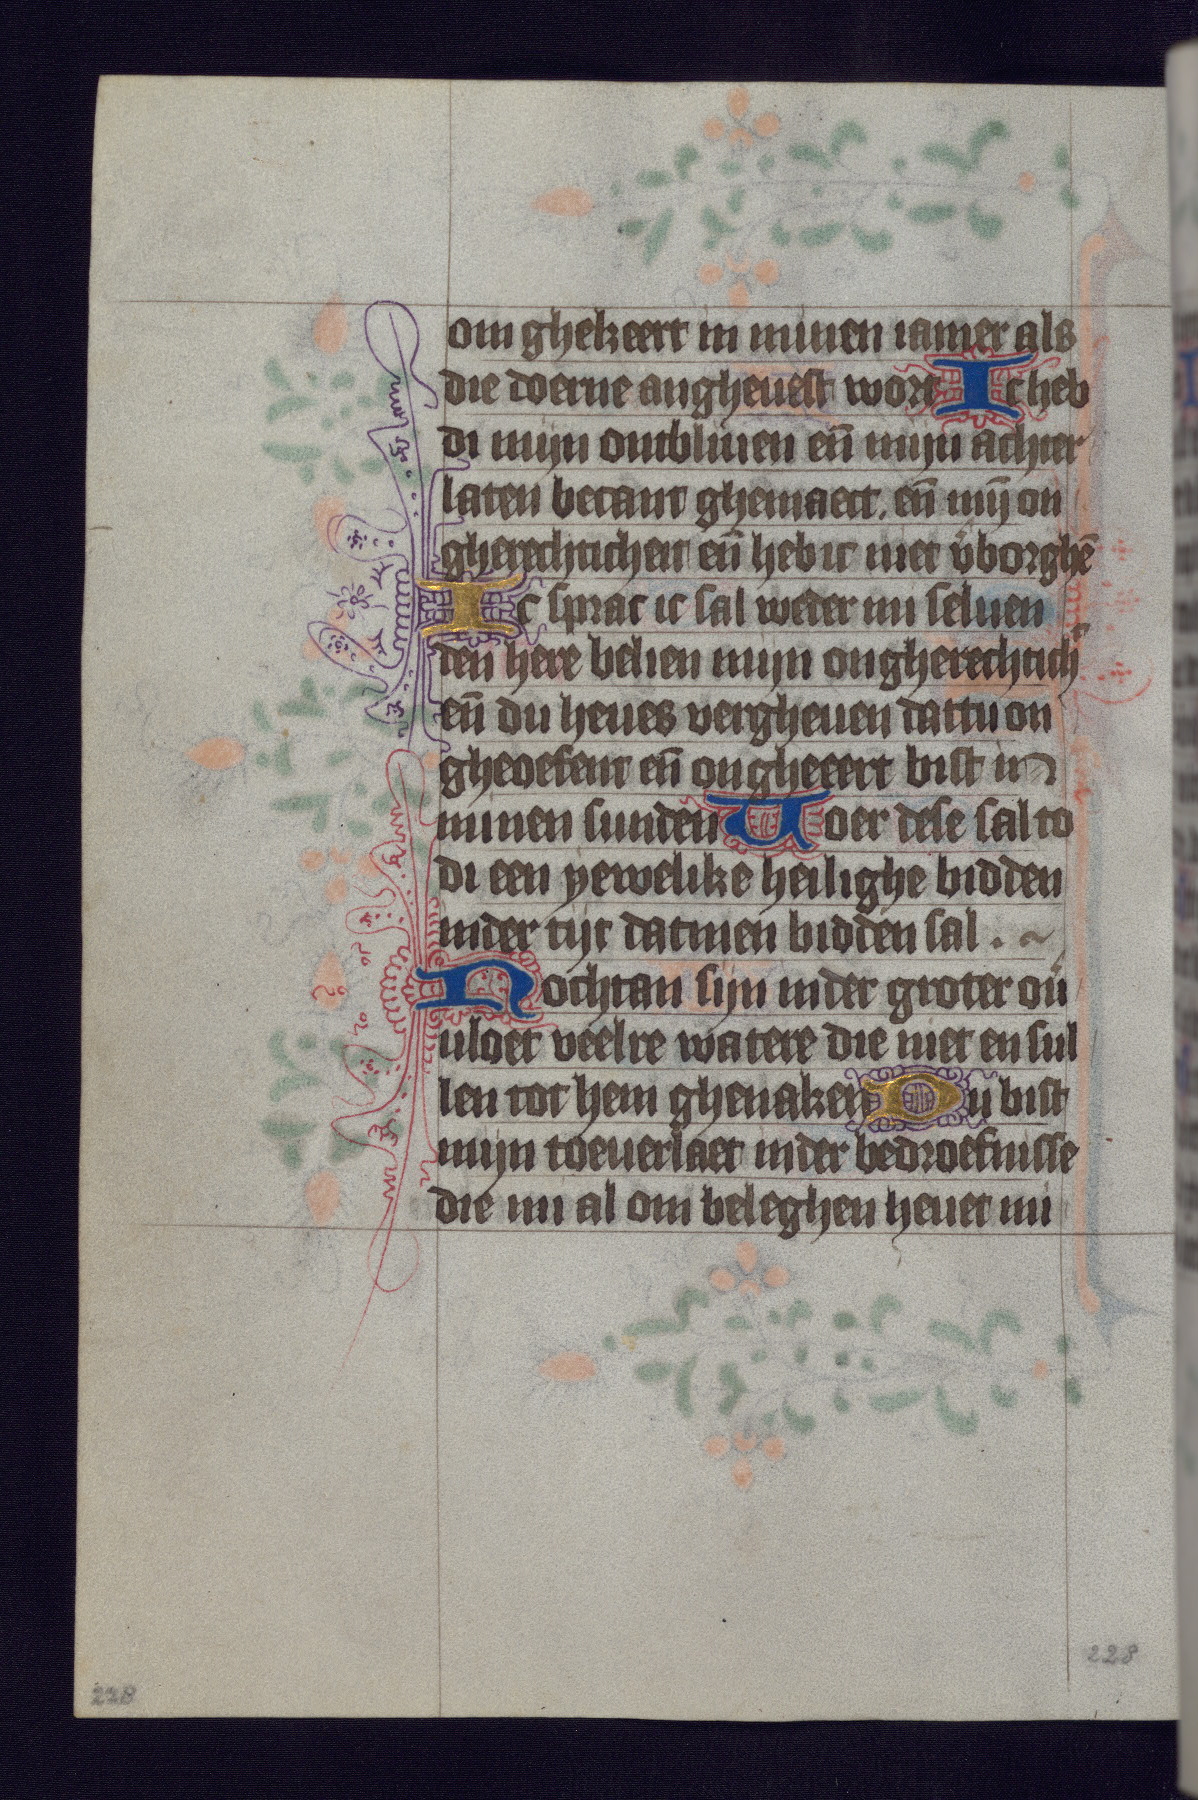 om ghekeert in minen iamer als
die doerne angheuest wort Ic heb
di mijn ontbliuen en̄ mijn achter
laten becant ghemaect. en̄ mij̄ on
gherechticheit en̄ heb ic niet v̄borghē
Ic sprac ic sal weder mi seluen
den here belien mijn ongherechtich
en̄ du heues vergheuen dattu on
gheoefent en̄ ongheeert bist in
minen sunden Voer dese sal to
di een yewelike heilighe bidden
inder tijt datmen bidden sal .
Nochtan sijn inder groter ou̅
uloet veelre watere die niet en sul
len tot hem ghenaken Du bist
mijn toeuerlaet inder bedroefnisse
die mi al om beleghen heuet mi
228
228